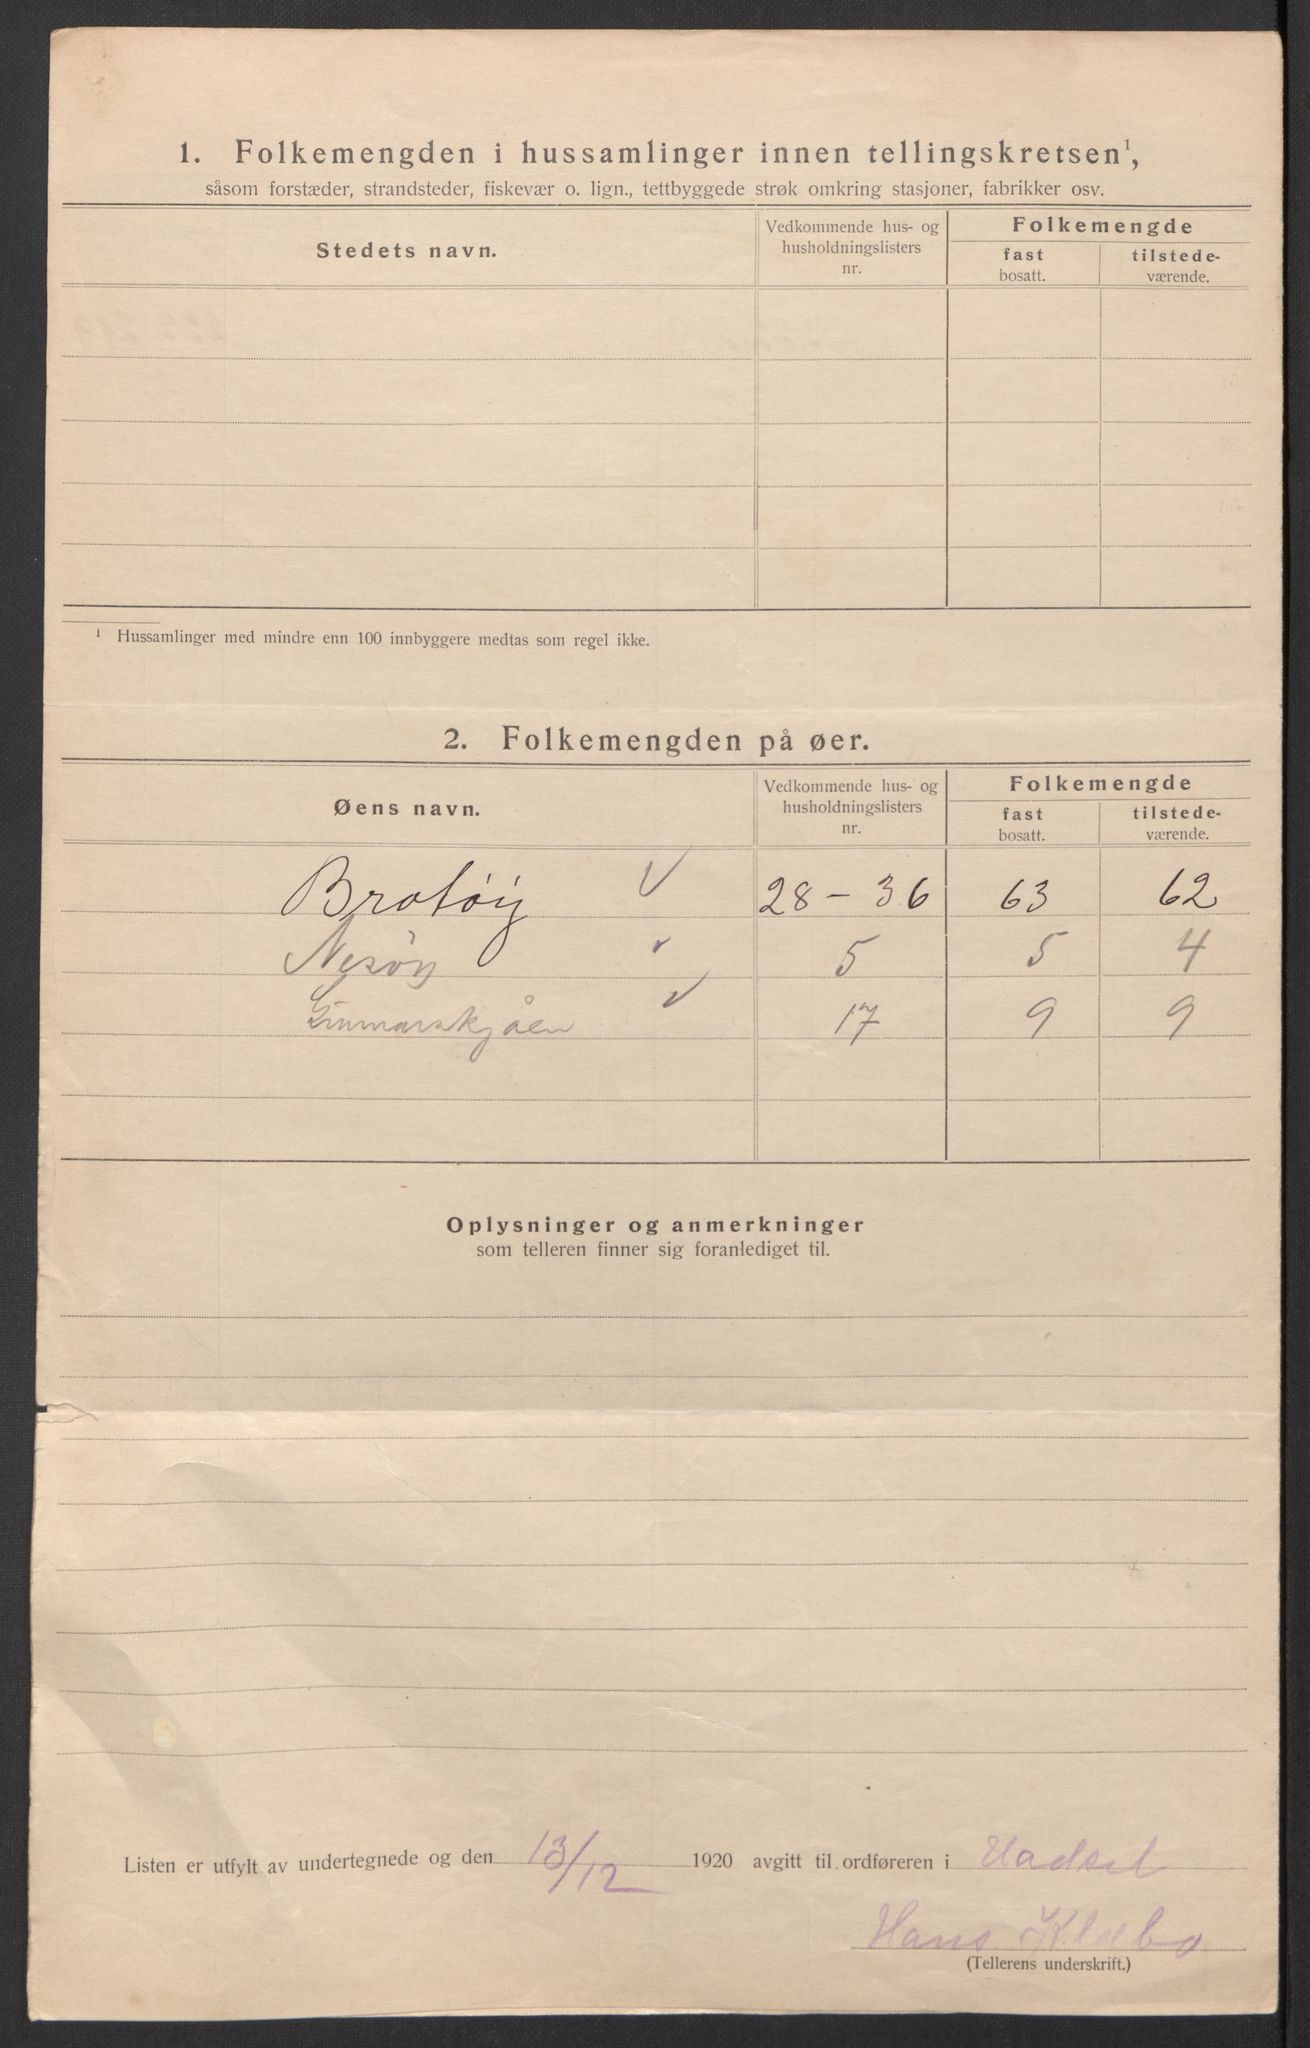 1. Folkemengden i hussamlinger innen tellingskretsen¹,
såsom forstæder, strandsteder, fiskevær o. lign., tettbyggede strøk omkring stasjoner, fabrikker osv.
Stedets navn.
Vedkommende hus- og husholdningslisters nr.
Folkemengde
fast bosatt.
tilstede-værende.
¹ Hussamlinger med mindre enn 100 innbyggere medtas som regel ikke.
2. Folkemengden på øer.
Øens navn.
Vedkommende hus- og husholdningslisters nr.
Folkemengde
fast bosatt.
tilstede-værende.
Brotöy 28 - 36 63 62
Nesöy 5 5 4
17 9 9
Oplysninger og anmerkninger
som telleren finner sig foranlediget til.
Listen er utfylt av undertegnede og den 13/12 1920 avgitt til ordføreren i Hadsel
Hans Klæbo
(Tellerens underskrift.)